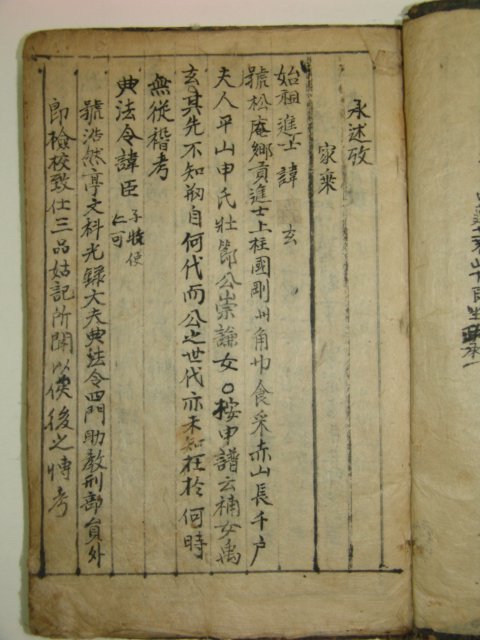 永述攷
家乘
始祖進士 諱 玄
號松庵鄉貢進士上柱國剛州角巾食采赤山長千戶
夫人平山申氏壯節公崇謙女○按申譜云補女禹
玄其先不知昉自何代而公之世代亦未知在於何時
無從稽考
典法令諱臣 子晩使 仁可
號浩然亭文科光錄大夫典法令四門助教刑部員外
郎檢校致仕三品姑記所聞以俟後之博考